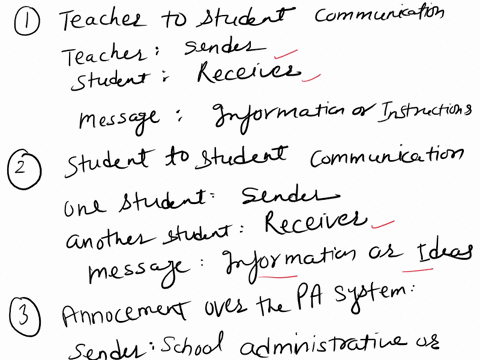 ① Teacher to Student Communication
Teacher: Sender
Student: Receiver
message: Information or Instructions
② Student to Student Communication
one Student: Sender
another Student: Receiver
message: Information or Ideas
③ Annocement over the PA System:
Sender: School administrative or